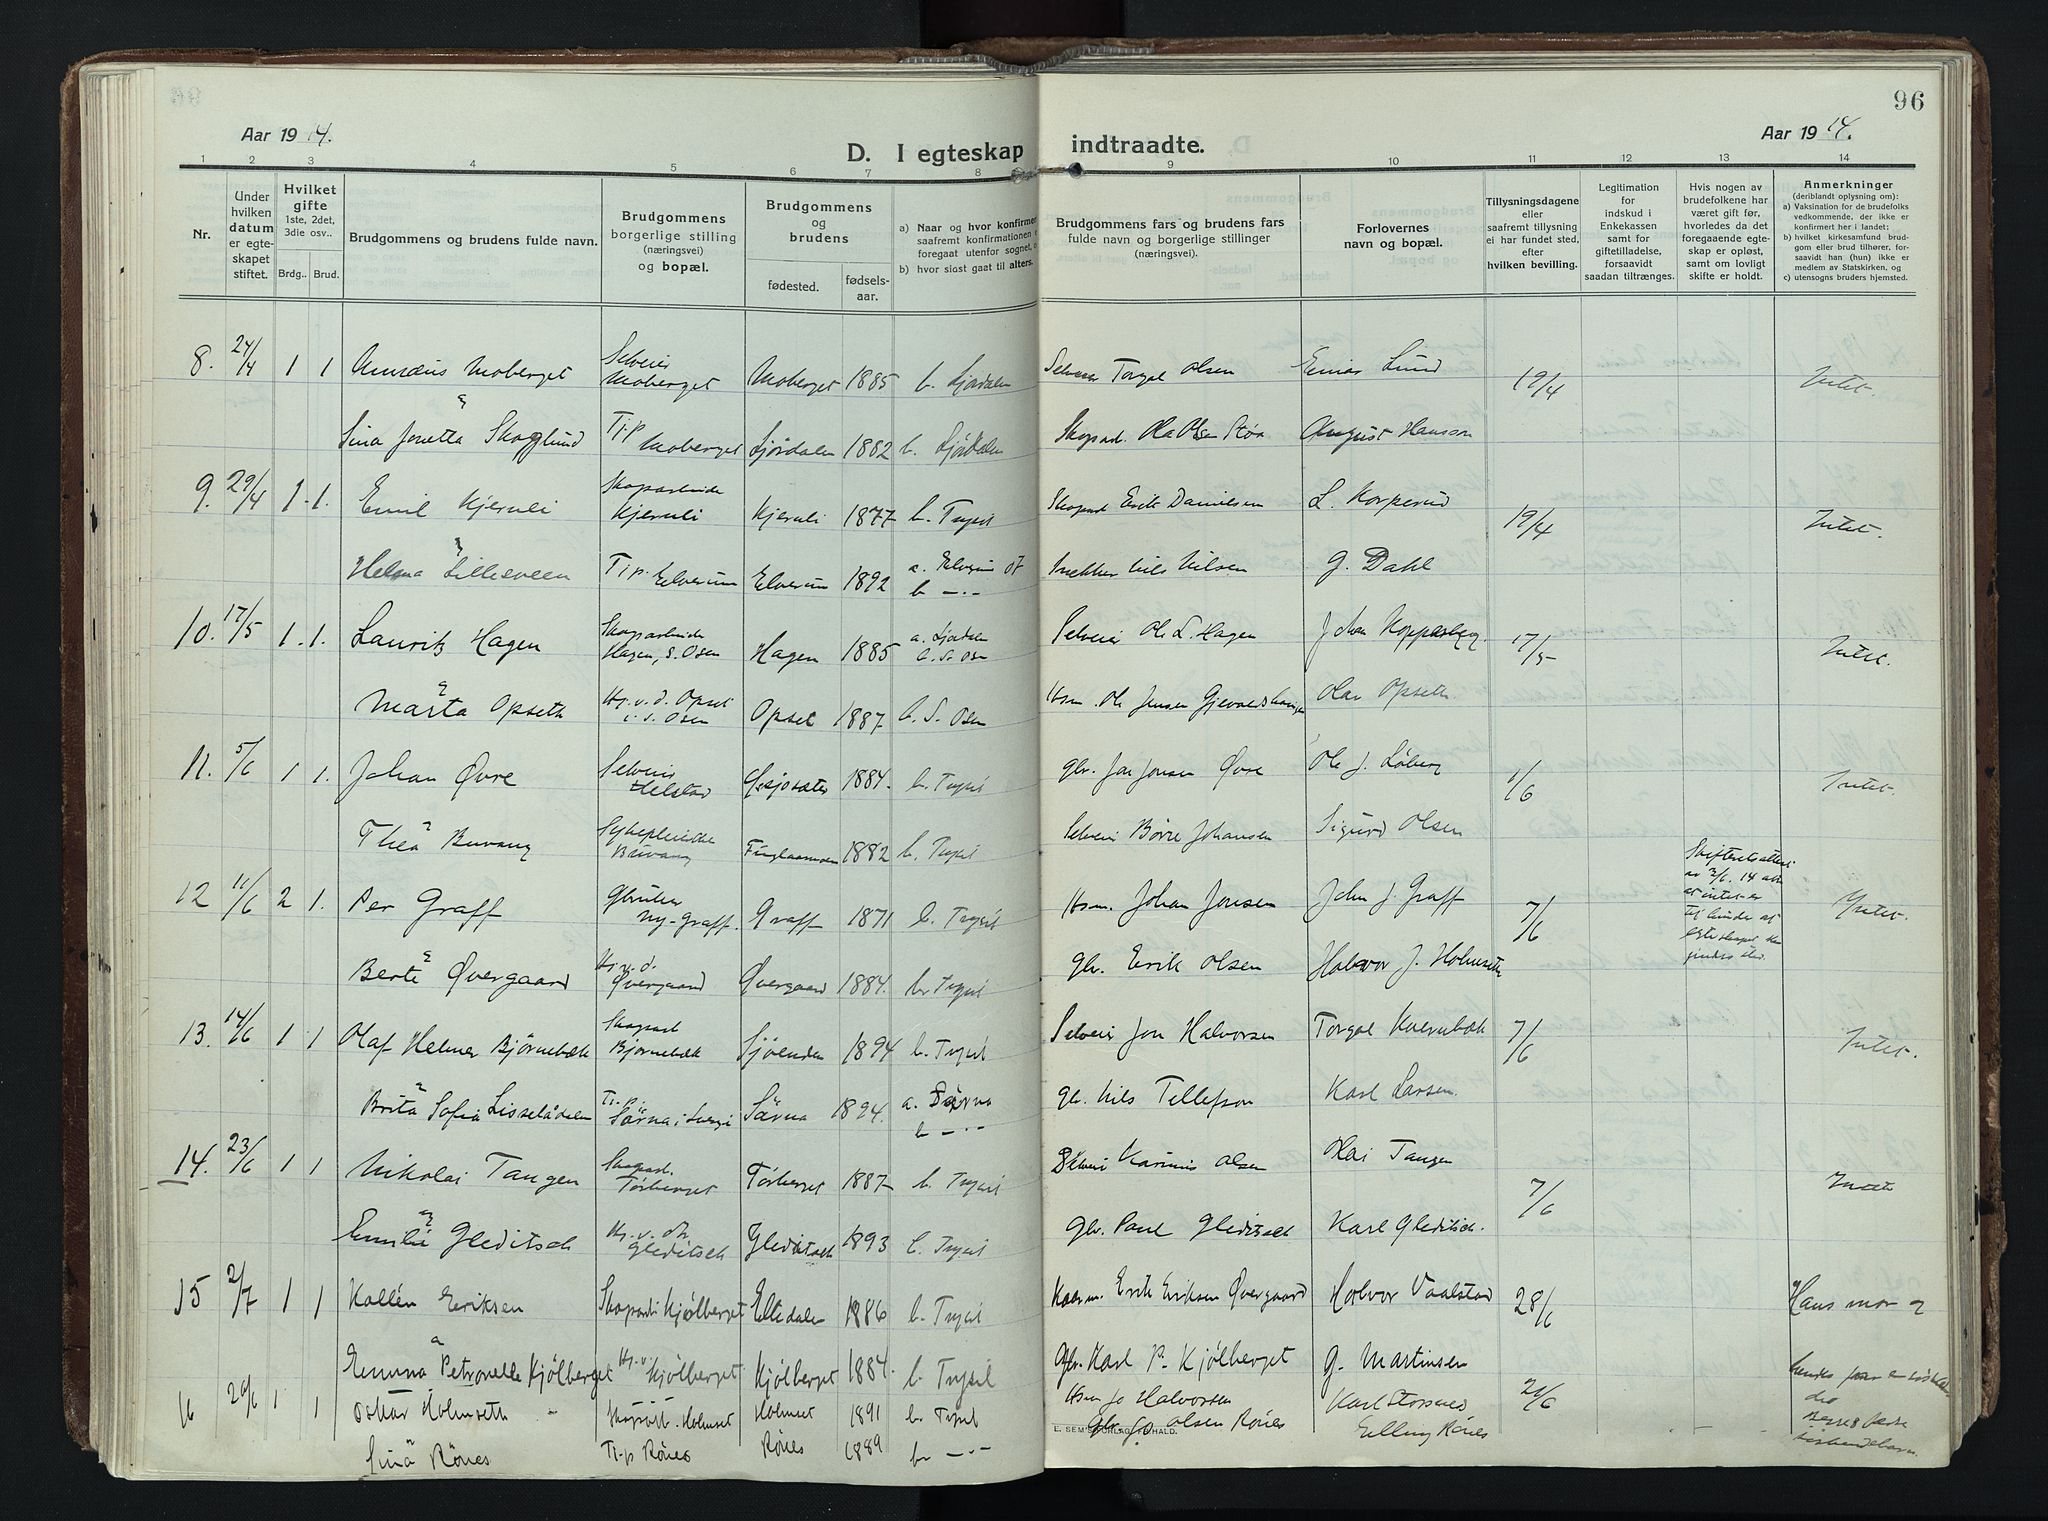 96
Aar 1914.
Aar 1914.
D. I egteskap indtraadte.
1 2 3 4 5 6 7 8 9 10 11 12 13 14
Nr.
Under hvilken datum er egteskapet stiftet.
Hvilket gifte 1ste, 2det, 3die osv..
Brdg.. Brud.
Brudgommens og brudens fulde navn.
Brudgommens borgerlige stilling (næringsvei) og bopæl.
Brudgommens og brudens
fødested. fødsels-aar.
a) Naar og hvor konfirmer
saafremt konfirmationen
foregaat utenfor sognet,
b) hvor sidst gaat til alters.
Brudgommens fars og brudens fars
fulde navn og borgerlige stillinger
(næringsvei).
Forlovernes navn og bopæl.
Tillysningsdagene eller saafremt tillysning ei har fundet sted, efter hvilken bevilling.
Legitimation for indskud i Enkekassen samt for giftetilladelse, forsaavidt saadan tiltrænges.
Hvis nogen av brudefolkene har været gift før, hvorledes da det foregaaende egteskap er opløst, samt om lovligt skifte er holdt.
Anmerkninger
(deriblandt oplysning om):
a) Vaksination for de brudefolks vedkommende, der ikke er konfirmert her i landet;
b) hvilket kirkesamfund brudgom eller brud tilhører, forsaavidt han (hun) ikke er medlem av Statskirken, og
c) utensogns bruders hjemsted.
8. 24/4 1 1 Moberget Selveier Moberget Moberget 1885 b. Ljørdalen Selveier Torgal Olsen Einar Lund 19/4 Intet.
Sina Jonetta Skoglund Tj.p Moberget Ljørdalen 1882 b. Ljørdalen Skogsarb. Ola Olsen Støa August Hansson
9. 29/4 1 1. Emil Kjernli Skogarbeider Kjernli Kjernli 1877 b. Trysil Skogarb Erik Danielsen L. Korperud 19/4 Intet.
Helma Lillesveen Tj.p. Elverum Elverum 1892 a. Elverum b. — Nils Nilsen G. Dahl
10. 17/5 1. 1. Lauritz Hagen Skogarbeider Hagen, S. Osen Hagen 1885 a. Ljørdalen b. S. Osen Selveier Ole L. Hagen Johan Koppesberg. 17/5 Intet.
Marta Opseth Hj.v.d. Opset i S. Osen Opset 1887. b. S. Osen Hsm. Ole Jensen Olav Opseth.
11. 5/6 1 1. Johan Øvre Selveier 1884. b. Trysil gbr. Jon Jonsen Øvre Ole J. Løberg 1/6 Intet.
Thea Buvang Sykepleierske Buvang 1882 b. Trysil Selveier Børre Johansen Sigurd Olsen
12 11/6 2 1. Per Graff Gbruker Ny-Graff. Graff 1871 b. Trysil Hsm. Johan Jonsen John J. Graff 7/6 Intet.
Berte Øvergaard Hj.v.d. Øvergaard Øvergaard 1884. b. Trysil gbr. Erik Olsen Halvor J. Holmseth
13. 14/6 1 1 Olaf Helmer Bjørnebæk Skogarb Bjørnebæk Sjøenden 1894 b. Trysil Selveier Jon Halvorsen Torgal Kvernbæk 7/6 Intet.
Brita Sofia Lisselådalen Tj.p. Särna i Sverige Särna 1894. a. Särna b — gb. Nils Tellefson Karl Larsen.
14. 23/6 1 1 Nikolai Tangen Skogarb. Tørberget Tørberget 1887 b. Trysil Selveier Karinus Olsen Olai Tangen 7/6 Intet
Emilie Gleditsch Hj.v.d. Gleditsch Gleditsch 1893 b. Trysil gbr. Paul Gleditsch Karl Gleditsch.
15 2/7 1 1 Kallén Eriksen Skogarb. Kjølberget Eltdalen 1886 b. Trysil Erik Eriksen Øvergaard Halvor Vaalstad 28/6 Hans mor og
Emma Petronelle Kjølberget Hj.v. Kjølberget Kjølberget 1884. b. Trysil Gbr. Karl P. Kjølberget G. Martinsen
16 20/6 1 1 Oskar Holmseth Skogarb. Holmset Holmset 1891 b. Trysil Hsm Jo Halvorsen Karl Storsnes 21/6
L. SEM'S FORLAG, F.HALD.
Sina Rønes Tj.p Rønes Rønes 1889 b. — Gbr. Jo Olsen Rønes Elling Rønes